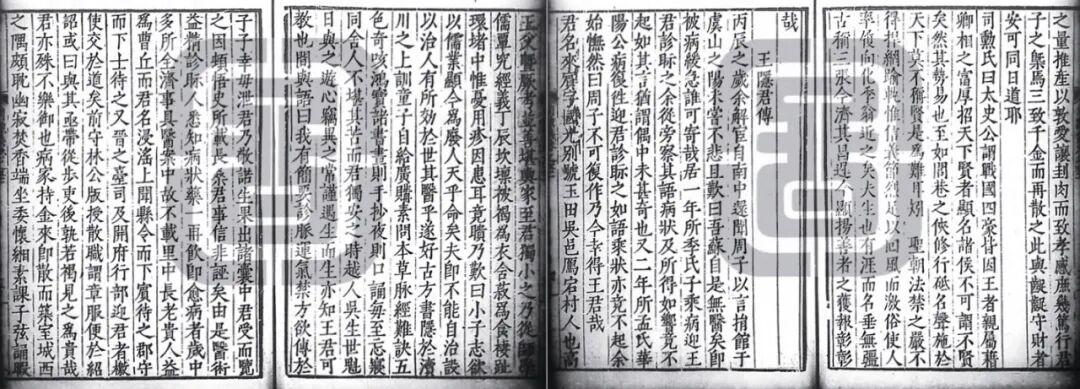 之量推產以敦愛讓刲肉而致孝感庶幾篤行君
子之槩焉三致千金而再散之此與齪齪守財者
安可同日道耶
司勳氏曰太史公謂戰國四豪皆因王者親屬藉
卿相之富厚招天下賢者顯名諸侯不可謂不賢
矣然其勢易也至如閭巷之俠修行砥名聲施於
天下莫不稱賢是為難耳矧 聖朝法禁之嚴不
得捍網踰軌惟信義節足以回風而激俗使人
率俊向化李翁近之矣夫生也有涯而名垂無疆
古稱三張今濟其昌顯揚善者之獲報彰彰
哉
王隱君傳
丙辰之歲余解官自南中還聞周子以言捐館于
虞山之陽未嘗不悲且歎曰吾蘇自是無醫矣即
被病緩急誰可寄哉居一年所季氏子乘病迎王
君診脉之余從旁察其語病狀及所得如響竟不
起如其言猶謂偶中未甚奇也又二年所孟氏華
陽公病復徃迎君診脉之如語乘狀亦竟不起余
始憮然曰周子不可復作乃今幸得王君哉
君名來賓字國光别號玉田吳邑馬宕村人也高
王父家至君獨小之乃從師學
儒覃究經義丁辰坎壈被褐為衣合菽為食棲趾
環堵中惟憂用疹因患耳竟聵乃歎曰小子志欲
以儒業顯今為廢人天乎命矣夫即不能自治設
以治人有所效於世其醫乎遂好古方書隱於濟
川之上訓童子自給廣購素問本草脉經難訣五
色奇咳鴻寶諸書晝則手抄夜則口誦每至忘寢
同舍人不堪其苦而君獨安之時越人吳生世魁
日與之遊心竊異之常謹遇生而生亦知王君可
教也間與語曰我有簡要診脉運氣禁方欲傳於
子子幸毋泄君乃敬諾生果出諸囊中君受而覽
之因頓悟史所載長桑君事信非誣矣由是醫術
益精診脉人悉知病狀藥一再飲即愈病者歲中
多所全濟事具醫案中故不載里中長老貴人益
為曹丘而君名浸滛上聞縣令而下賓待之郡守
而下士待之又晉之臺司及開府行部迎君者檄
使交於道矣前守林公版授散職謂章服便於紹
詔或曰與其亟帶從步吏後孰若褐見之為貴哉
君亦殊不樂御也病家持金來即散而築室城西
之隅頗耽幽寂焚香端坐委懷緗素課子弦誦暇